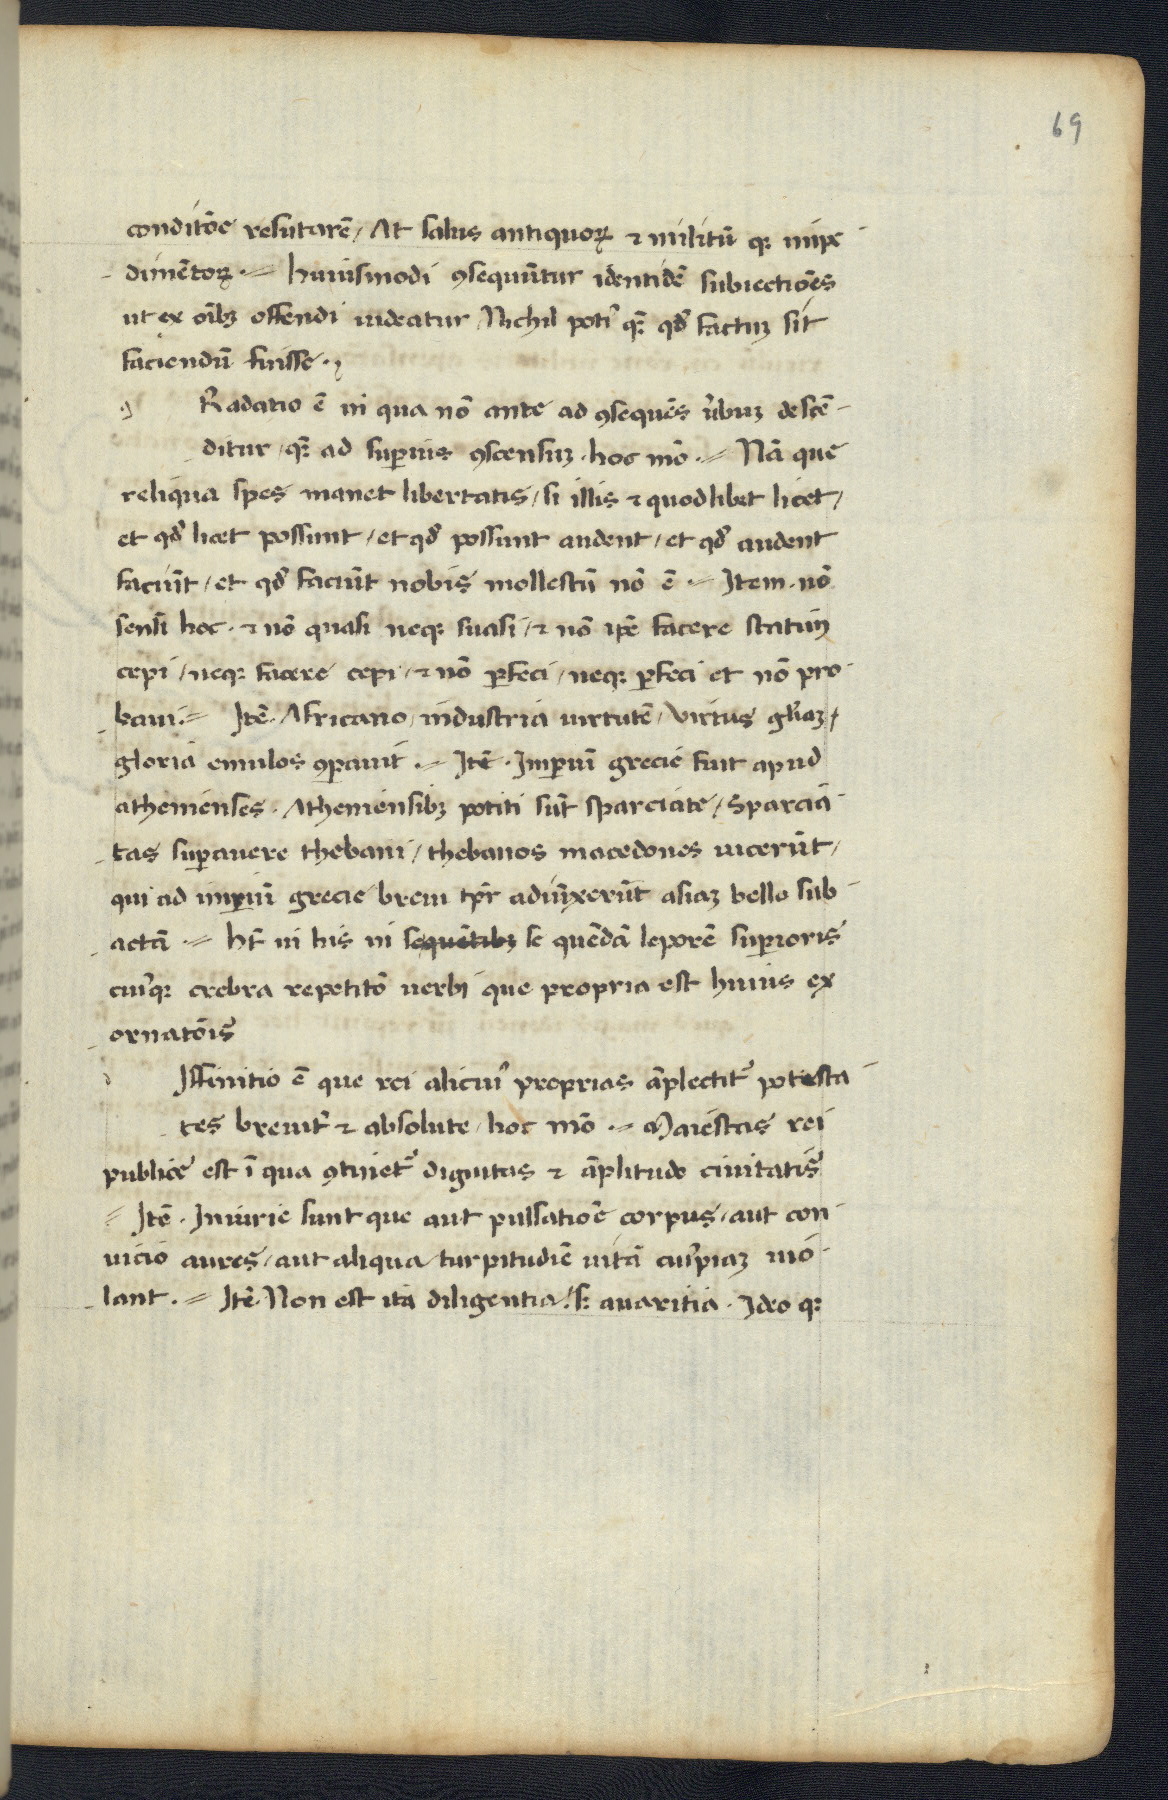 69
conditōe refutarē / At salus antiquoꝝ ⁊ militū qꝫ impe
dimētoꝝ . Huiusmodi ꝯsequūtur identidē subiectiōes
ut ex oībꝫ offendi uideatur / Nichil potiꝰ qꝫ qđ factuꝫ sit
faciendū fuisse .
g Radatio ē in qua nō ante ad ꝯsequēs ūbuꝫ descē
ditur / qꝫ ad suꝑius ꝯscensuꝫ . hoc mō . Nā que
reliqua spes manet libertatis / si illis ⁊ quod libet licet /
et qđ licet possunt / et qđ possunt audent / et qđ audent
faciūt / et qđ faciūt nobis mollestū nō ē . Item . nō
sensi hoc . ⁊ nō quasi neqꝫ suasi / ⁊ nō ip̄e facere statim
cepi / neqꝫ facere cepi / ⁊ nō ꝑfeci / neqꝫ ꝑfeci et nō pro
baui . Itē . Africano industria uirtutē / Virtus gl̄iaꝫ /
gloria emulos ꝯꝑauit . Itē . Imꝑiū grecie fuit apud
athenienses . Atheniensibꝫ potiti sūt sparciate / Sparcia
tas suꝑauere thebani / thebanos macedones uicerūt /
qui ad imꝑiū grecie breui tꝑr̄ adiūxerūt asiaꝫ bello sub
actā . Ht̄ in his in sequētibꝫ se quēdā leporē suꝑioris
cuiꝰqꝫ crebra repetitō uerbi que propria est huius ex
ornatōis
d Iffinitio ē que rei alicuiꝰ proprias āplectitᷣ potesta
tes breuitᷣ ⁊ absolute / hoc mō . Maiestas rei
publice est ī qua ꝯtinetᷣ dignitas ⁊ āplitudo ciuitatis
Itē . Iniurie sunt que aut pulsatiōe corpus / aut con
uicio aures / aut aliqua turpitudīe uitā cuiꝰpiaꝫ uio
lant . Itē . Non est ista diligentia / sꝫ auaritia . Ideo qꝫ